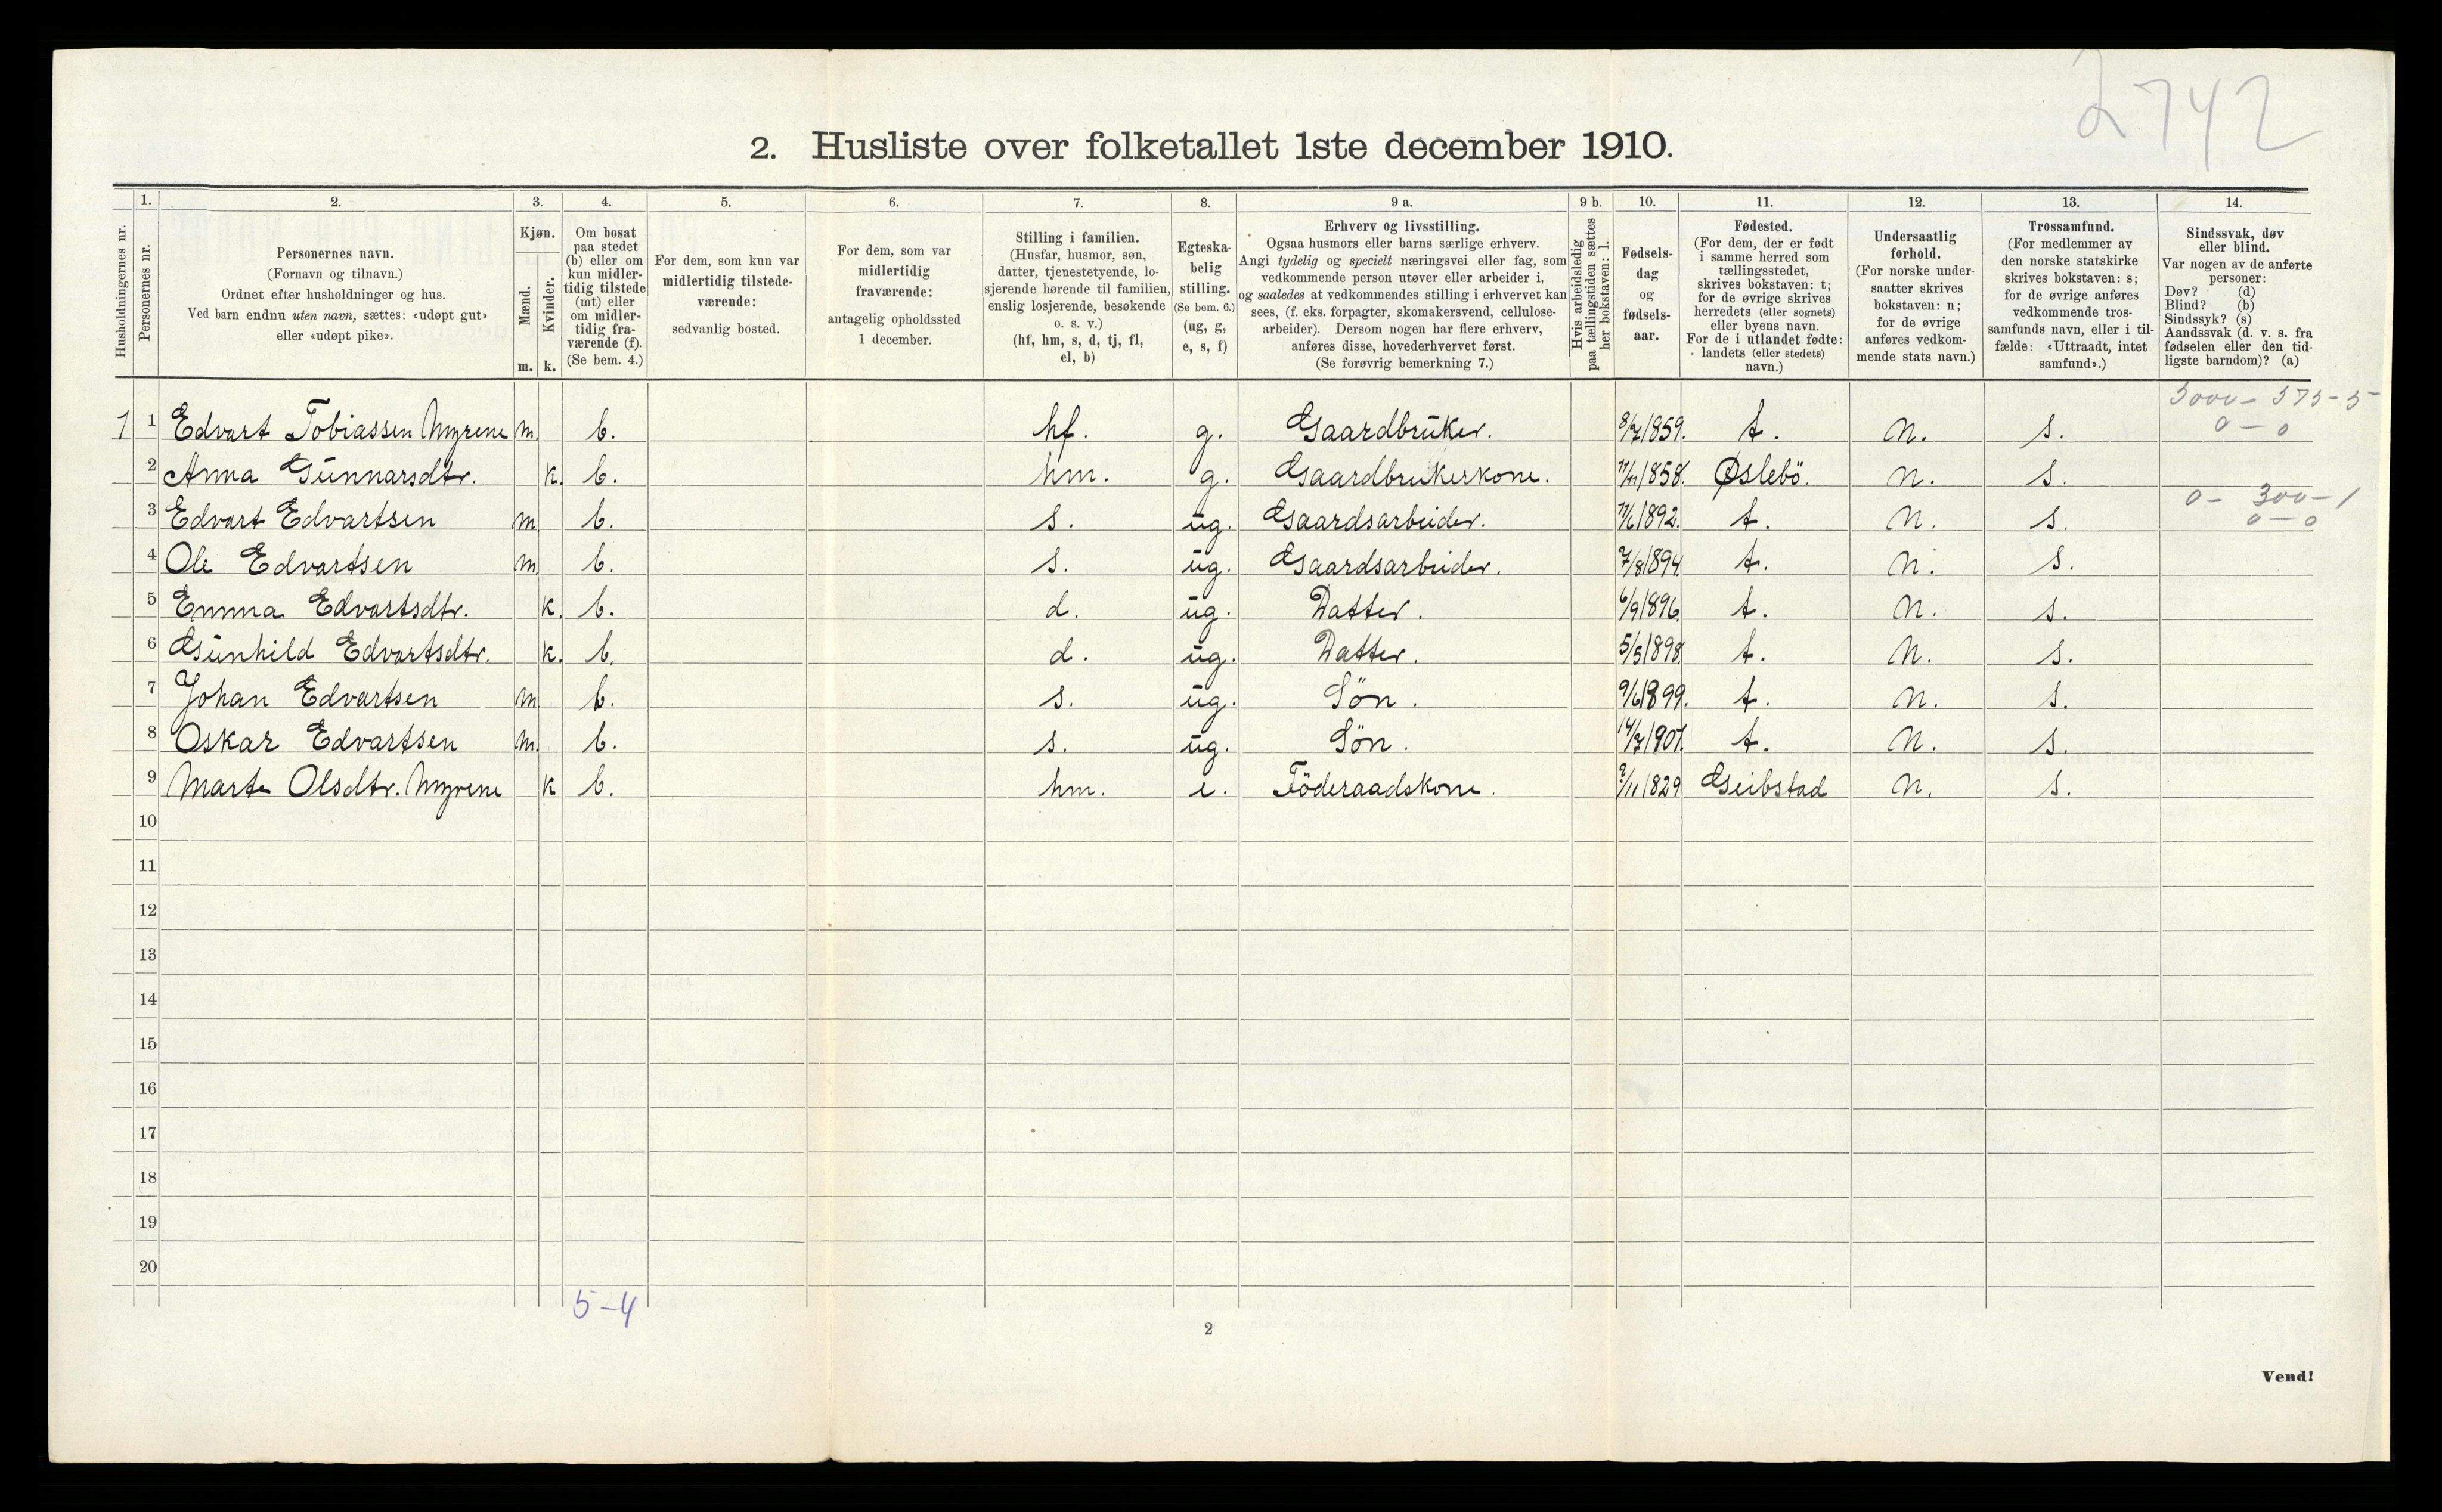 2742
2. Husliste over folketallet 1ste december 1910.
Husholdningernes nr.
1.
Personernes nr.
2.
Personernes navn.
(Fornavn og tilnavn.)
Ordnet efter husholdninger og hus.
Ved barn endnu uten navn, sættes: «udøpt gut»
eller «udøpt pike».
3.
Kjøn.
Mænd.
Kvinder.
m. k.
4.
Om bosat
paa stedet
(b) eller om
kun midler-
tidig tilstede
(mt) eller
om midler-
tidig fra-
værende (f).
(Se bem. 4.)
5.
For dem, som kun var
midlertidig tilstede-
værende:
sedvanlig bosted.
6.
For dem, som var
midlertidig
fraværende:
antagelig opholdssted
1 december.
7.
Stilling i familien.
(Husfar, husmor, søn,
datter, tjenestetyende, lo-
sjerende hørende til familien,
enslig losjerende, besøkende
o. s. v.)
(hf, hm, s, d, tj, fl,
el, b)
8.
Egteska-
belig
stilling.
(Se bem. 6.)
(ug, g,
e, s, f)
9 a.
Erhverv og livsstilling.
Ogsaa husmors eller barns særlige erhverv.
Angi tydelig og specielt næringsvei eller fag, som
vedkommende person utøver eller arbeider i,
og saaledes at vedkommendes stilling i erhvervet kan
sees, (f. eks. forpagter, skomakersvend, cellulose-
arbeider). Dersom nogen har flere erhverv,
anføres disse, hovederhvervet først.
(Se forøvrig bemerkning 7.)
9 b.
Hvis arbeidsledig
paa tællingstiden sættes
her bokstaven: l.
10.
Fødsels-
dag
og
fødsels-
aar.
11.
Fødested.
(For dem, der er født
i samme herred som
tællingsstedet,
skrives bokstaven: t;
for de øvrige skrives
herredets (eller sognets)
eller byens navn.
For de i utlandet fødte:
landets (eller stedets)
navn.)
12.
Undersaatlig
forhold.
(For norske under-
saatter skrives
bokstaven: n;
for de øvrige
anføres vedkom-
mende stats navn.)
13.
Trossamfund.
(For medlemmer av
den norske statskirke
skrives bokstaven: s;
for de øvrige anføres
vedkommende tros-
samfunds navn, eller i til-
fælde: «Uttraadt, intet
samfund».)
14.
Sindssvak, døv
eller blind.
Var nogen av de anførte
personer:
Døv? (d)
Blind? (b)
Sindssyk? (s)
Aandssvak (d. v. s. fra
fødselen eller den tid-
ligste barndom)? (a)
3000 - 575 - 5
1 1 Edvart Tobiassen Myrene m. b. hf. g. Gaardbruker. 8/7 1859. t. n. s. 0 - 0
2 Anna Gunnarsdtr. k. b. hm. g. Gaardbrukerkone. 11/11 1858. Øslebö. n. s.
0 - 300 - 1
3 Edvart Edvartsen m. b. s. ug. Gaardsarbeider. 11/6 1892. t. n. s. 0 - 0
4 Ole Edvartsen m. b. s. ug. Gaardsarbeider. 7/8 1894. t. n. s.
5 Emma Edvartsdtr. k. b. d. ug. Datter. 6/9 1896. t. n. s.
6 Gunhild Edvartsdtr. k. b. d. ug. Datter. 5/5 1898. t. n. s.
7 Johan Edvartsen m. b. s. ug. Søn. 9/6 1899. t. n. s.
8 Oskar Edvartsen m. b. s. ug. Søn. 14/7 1901. t. n. s.
9 Marte Olsdtr. Myrene k b. hm. e. Föderaadskone. /11 1829 Geibstad n. s.
10
11
12
13
14
15
16
17
18
19
20
5-4
2
Vend!